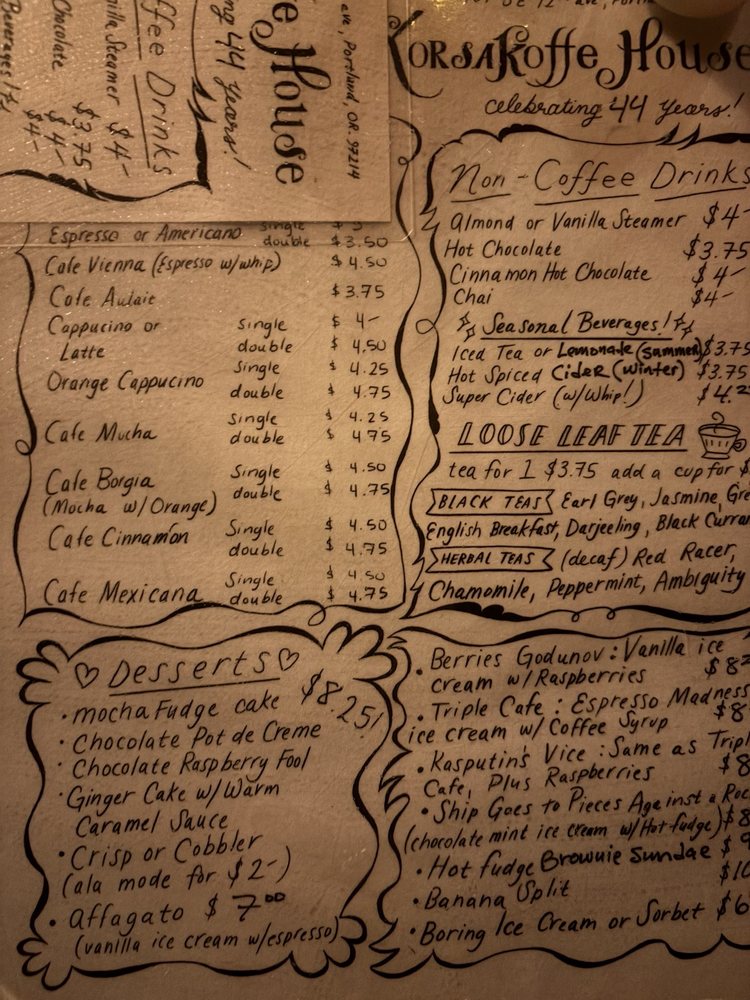 KORSAKoffe House
celebrating 44 years!
ave, Portland, OR. 97214
House
44 years!
Coffee Drinks
Vanilla Steamer $4-
Chocolate $3.75
$4-
$4-
Espresso or Americano single $3
double $3.50
Cafe Vienna (Espresso w/whip) $4.50
Cafe Aulait $3.75
Cappucino or single $4-
Latte double $4.50
Orange Cappucino Single $4.25
double $4.75
Cafe Mocha Single $4.25
double $4.75
Cafe Borgia Single $4.50
(Mocha w/Orange) double $4.75
Cafe Cinnamon Single $4.50
double $4.75
Cafe Mexicana Single $4.50
double $4.75
Non-Coffee Drinks
Almond or Vanilla Steamer $4-
Hot Chocolate $3.75
Cinnamon Hot Chocolate $4-
Chai $4-
Seasonal Beverages!
Iced Tea or Lemonade (summer) $3.75
Hot Spiced Cider (winter) $3.75
Super Cider (w/Whip!) $4.2
LOOSE LEAF TEA
tea for 1 $3.75 add a cup for $
BLACK TEAS Earl Grey, Jasmine, Gre
English Breakfast, Darjeeling, Black Curran
HERBAL TEAS (decaf) Red Racer,
Chamomile, Peppermint, Ambiguity
Desserts
• mocha Fudge cake $8.25!
• Chocolate Pot de Creme
• Chocolate Raspberry Fool
• Ginger Cake w/Warm
Caramel Sauce
• Crisp or Cobbler
(ala mode for $2-)
• Affagato $7.00
(vanilla ice cream w/espresso)
• Berries Godunov: Vanilla ice
cream w/Raspberries $8
• Triple Cafe: Espresso Madness
ice cream w/ Coffee Syrup $8
• Kasputin's Vice: Same as Tripl
Cafe, Plus Raspberries $8
• Ship Goes to Pieces Against a Roc
(chocolate mint ice cream w/Hot fudge) $8
• Hot fudge Brownie Sundae $9
• Banana Split $10
• Boring Ice Cream or Sorbet $6